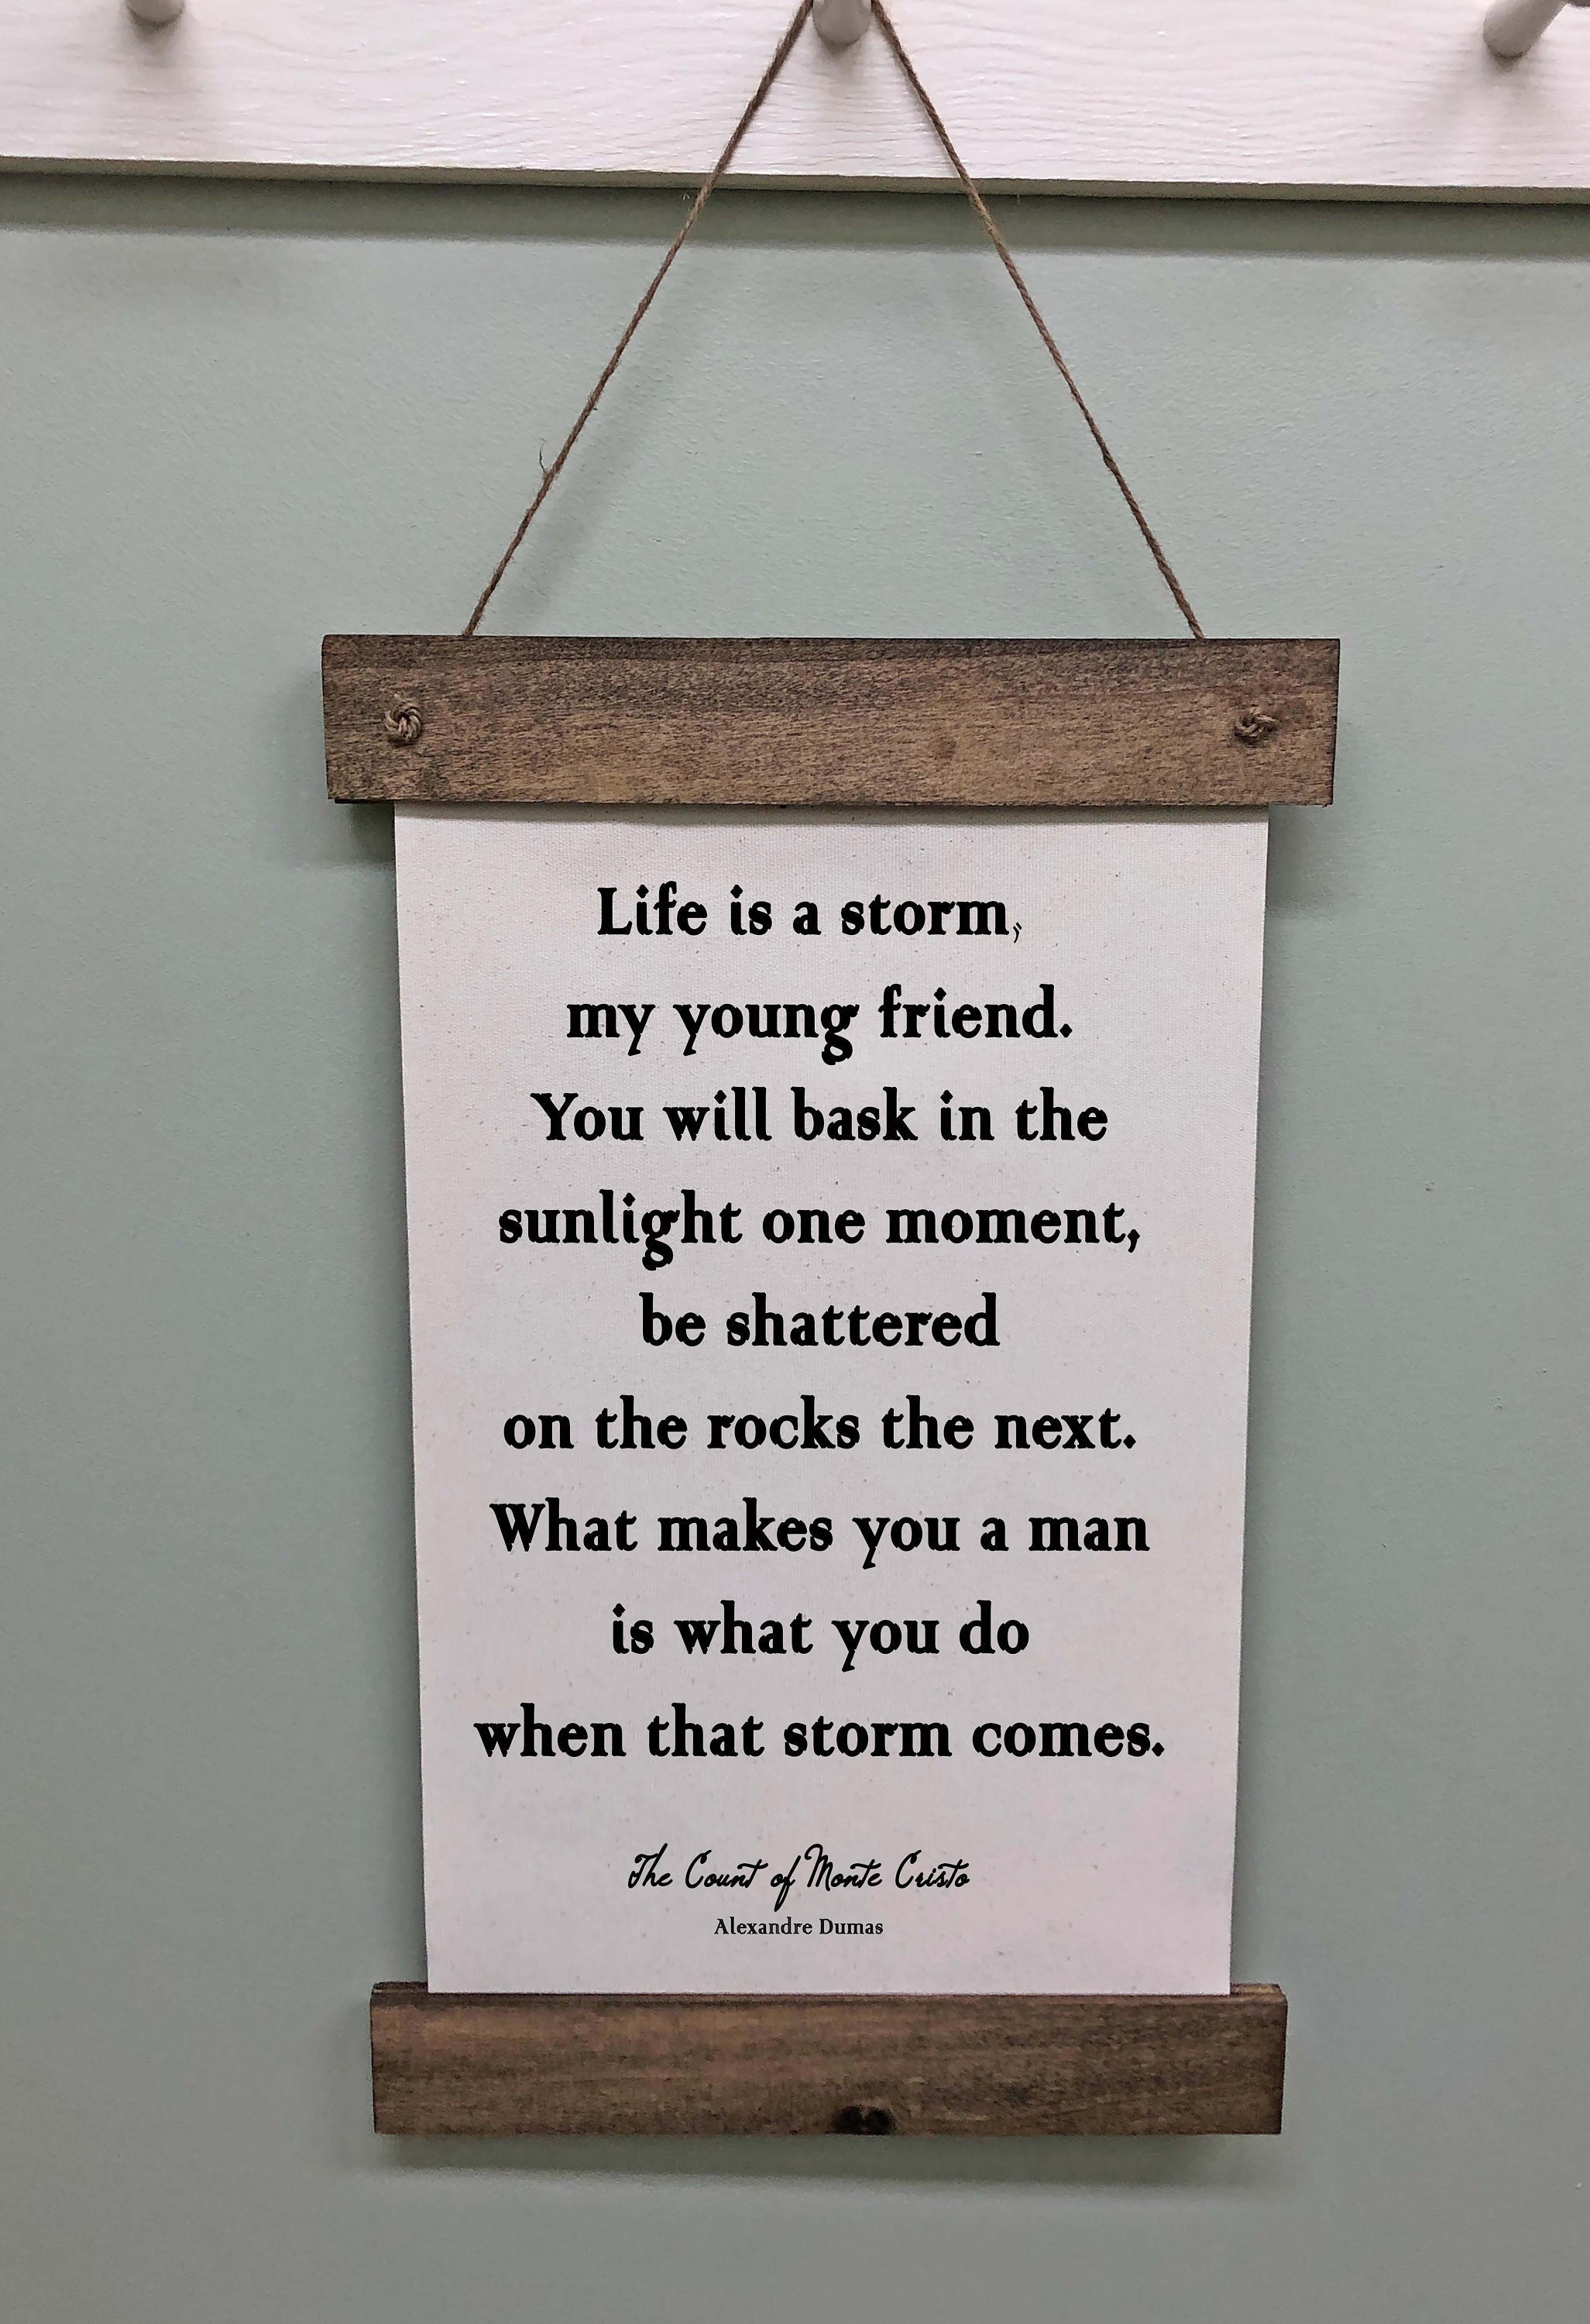 Life is a storm,
my young friend.
You will bask in the
sunlight one moment,
be shattered
on the rocks the next.
What makes you a man
is what you do
when that storm comes.
The Count of Monte Cristo
Alexandre Dumas